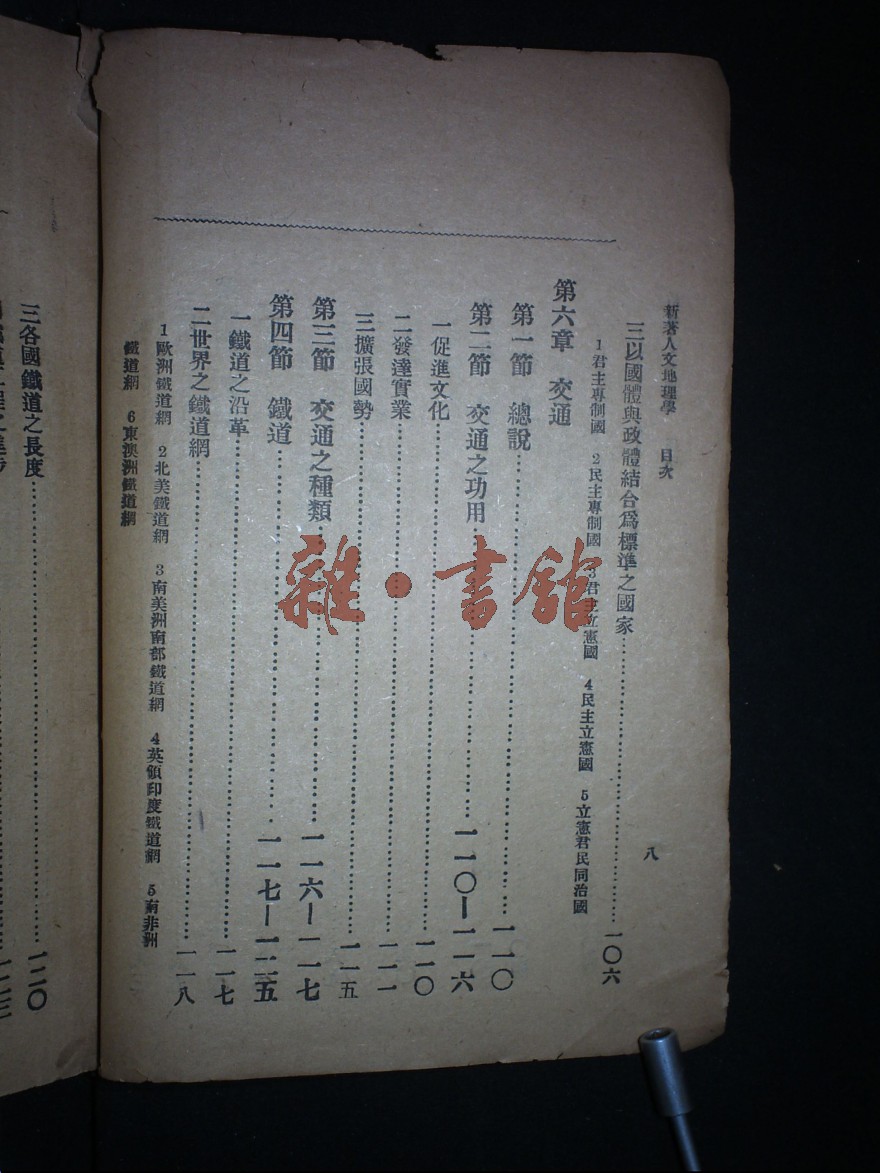 新著人文地理學 目次 八
三以國體與政體結合爲標準之國家……一〇六
1君主專制國 2民主專制國 3君主立憲國 4民主立憲國 5立憲君民同治國
第六章 交通
第一節 總說……一一〇
第二節 交通之功用……一一〇—一一六
一促進文化……一一〇
二發達實業……一一一
三擴張國勢……一一五
第三節 交通之種類……一一六—一一七
第四節 鐵道……一一七—一二五
一鐵道之沿革……一一七
二世界之鐵道網……一一八
1歐洲鐵道網 2北美鐵道網 3南美洲南部鐵道網 4英領印度鐵道網 5南非洲
鐵道網 6東澳洲鐵道網
三各國鐵道之長度……一二〇
雜·書館